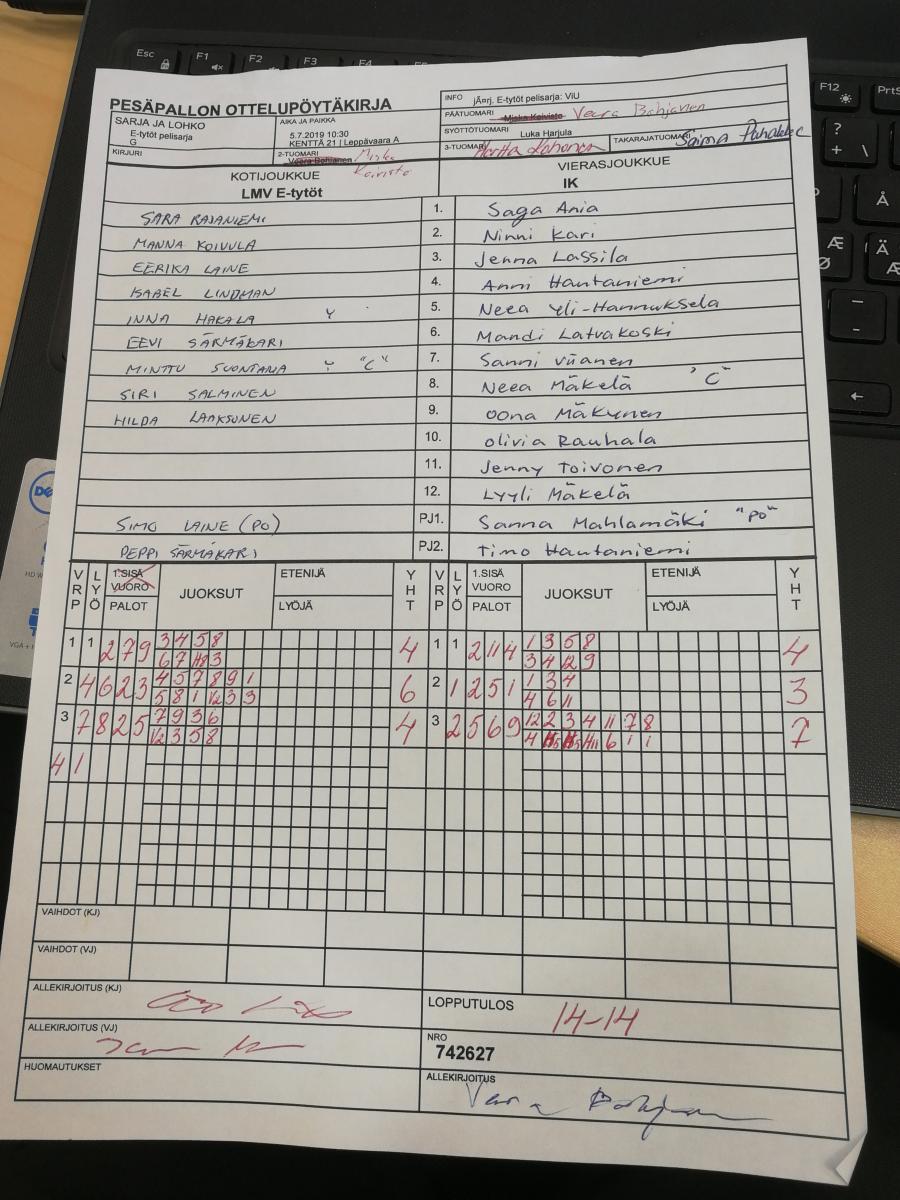 Esc F1 F2 F3 F4 F12 PrtS
PESÄPALLON OTTELUPÖYTÄKIRJA
INFO jÃ¤rj. E-tytöt pelisarja: ViU
PÄÄTUOMARI Miska Koivisto Veera Bohjanen
SARJA JA LOHKO
E-tytöt pelisarja
G
AIKA JA PAIKKA
5.7.2019 10:30
KENTTÄ 21 | Leppävaara A
SYÖTTÖTUOMARI Luka Harjula
KIRJURI
2-TUOMARI
Veera Bohjanen Miska Koivisto
3-TUOMARI
TAKARAJATUOMARI
KOTIJOUKKUE
LMV E-tytöt
VIERASJOUKKUE
IK
SARA RAJANIEMI 1. Saga Ania
MANNA KOIVULA 2. Ninni Kari
EERIKA LAINE 3. Jenna Lassila
ISABEL LINDMAN 4. Anni Hautaniemi
INNA HAKALA Y 5. Neea Yli-Hannuksela
EEVI SÄRMÄKARI 6. Mandi Latvakoski
MINTTU SUONTANA Y "C" 7. Sanni Viianen
SIRI SALMINEN 8. Neea Mäkelä "C"
HILDA LAAKSONEN 9. Oona Mäkynen
10. Olivia Rauhala
11. Jenny Toivonen
12. Lyyli Mäkelä
SIMO LAINE (PO) PJ1. Sanna Mahlamäki "PO"
PEPPI SÄRMÄKARI PJ2. Timo Hautaniemi
VRP LYÖ 1.SISÄ VUORO PALOT JUOKSUT ETENIJÄ LYÖJÄ YHT VRP LYÖ 1.SISÄ VUORO PALOT JUOKSUT ETENIJÄ LYÖJÄ YHT
1 1 2 7 9 3 4 5 8 4 1 1 2 11 4 1 3 5 8 4
6 7 3 3 4 12 9
2 4 6 2 3 4 5 7 8 9 1 6 2 1 2 5 1 1 3 4 3
5 8 1 12 3 3 4 6 11
3 7 8 2 5 7 9 3 6 4 3 2 5 6 9 12 2 3 4 11 7 8 7
12 3 5 8 4 6 1 1
4 1
VAIHDOT (KJ)
VAIHDOT (VJ)
ALLEKIRJOITUS (KJ)
LOPPUTULOS 14-14
ALLEKIRJOITUS (VJ)
NRO
742627
HUOMAUTUKSET
ALLEKIRJOITUS